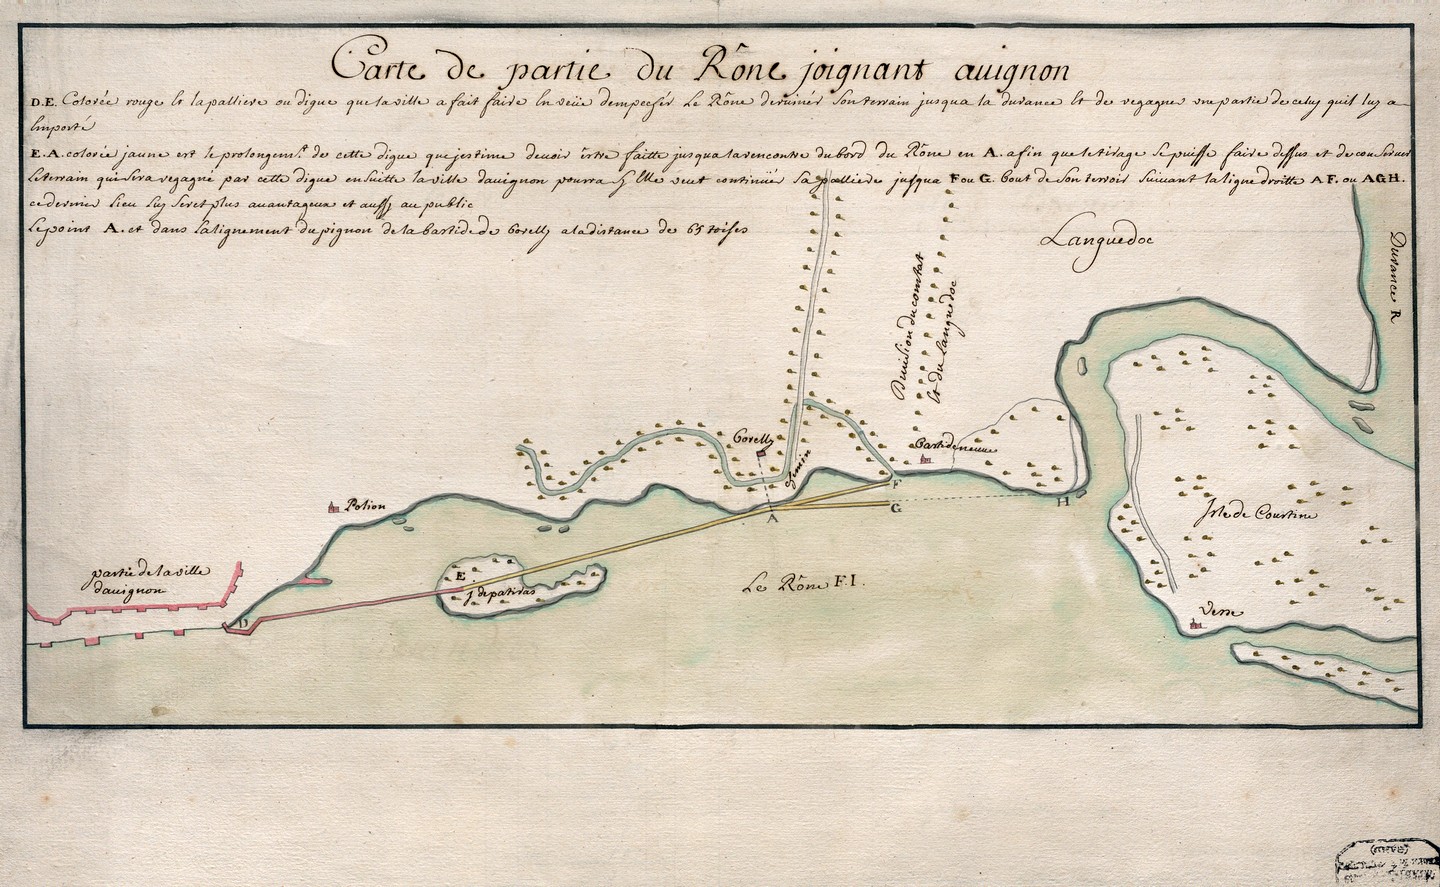 Carte de partie du Rône joignant auignon
D.E. Colorée rouge Et la palliere ou digue que la ville a fait faire En veüe dempecher Le Rône deruiner Son terrain jusqua la durance Et de regagner vne partie de celuy quil luy a
Emporté
E.A. colorée jaune est le prolongemt. de cette digue que jestime deuoir estre faitte jusqua la rencontre du bord du Rône en A. afin que le tirage Se puisse faire dessus et de conseruer
Le terrain qui Sera regagné par cette digue en Suitte la ville dauignon pourra Sy Elle veut continuër Sa palliere jusqua F ou G. bout de Son terroir Suivant la ligne droitte A F. ou AGH.
ce dernier lieu luy Seret plus auantageux et aussy au public
Le point A. et dans la lignement du pignon de la bastide de Gorelly a la distance de 65 toises
Languedoc
Durance R
Diuision du comtat
Et du Languedoc
Gorelly
Chemin
Bastide neuue
Polion
F
H
G
A
Isle de Courtine
partie de la ville
dauignon
E
j. de patiras
Le Rône F I.
D
Verre